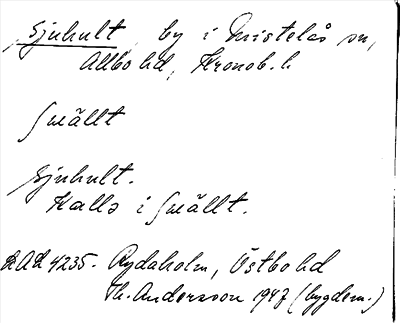 Sjuhult, by i Mistelås sn,
Allbo hd, Kronob. l.
ʃuällt
Sjuhult.
Kallas i ʃuällt.
ULMA 4235. Rydaholm, Östbo hd
Th. Andersson 1947 (bygdem.)